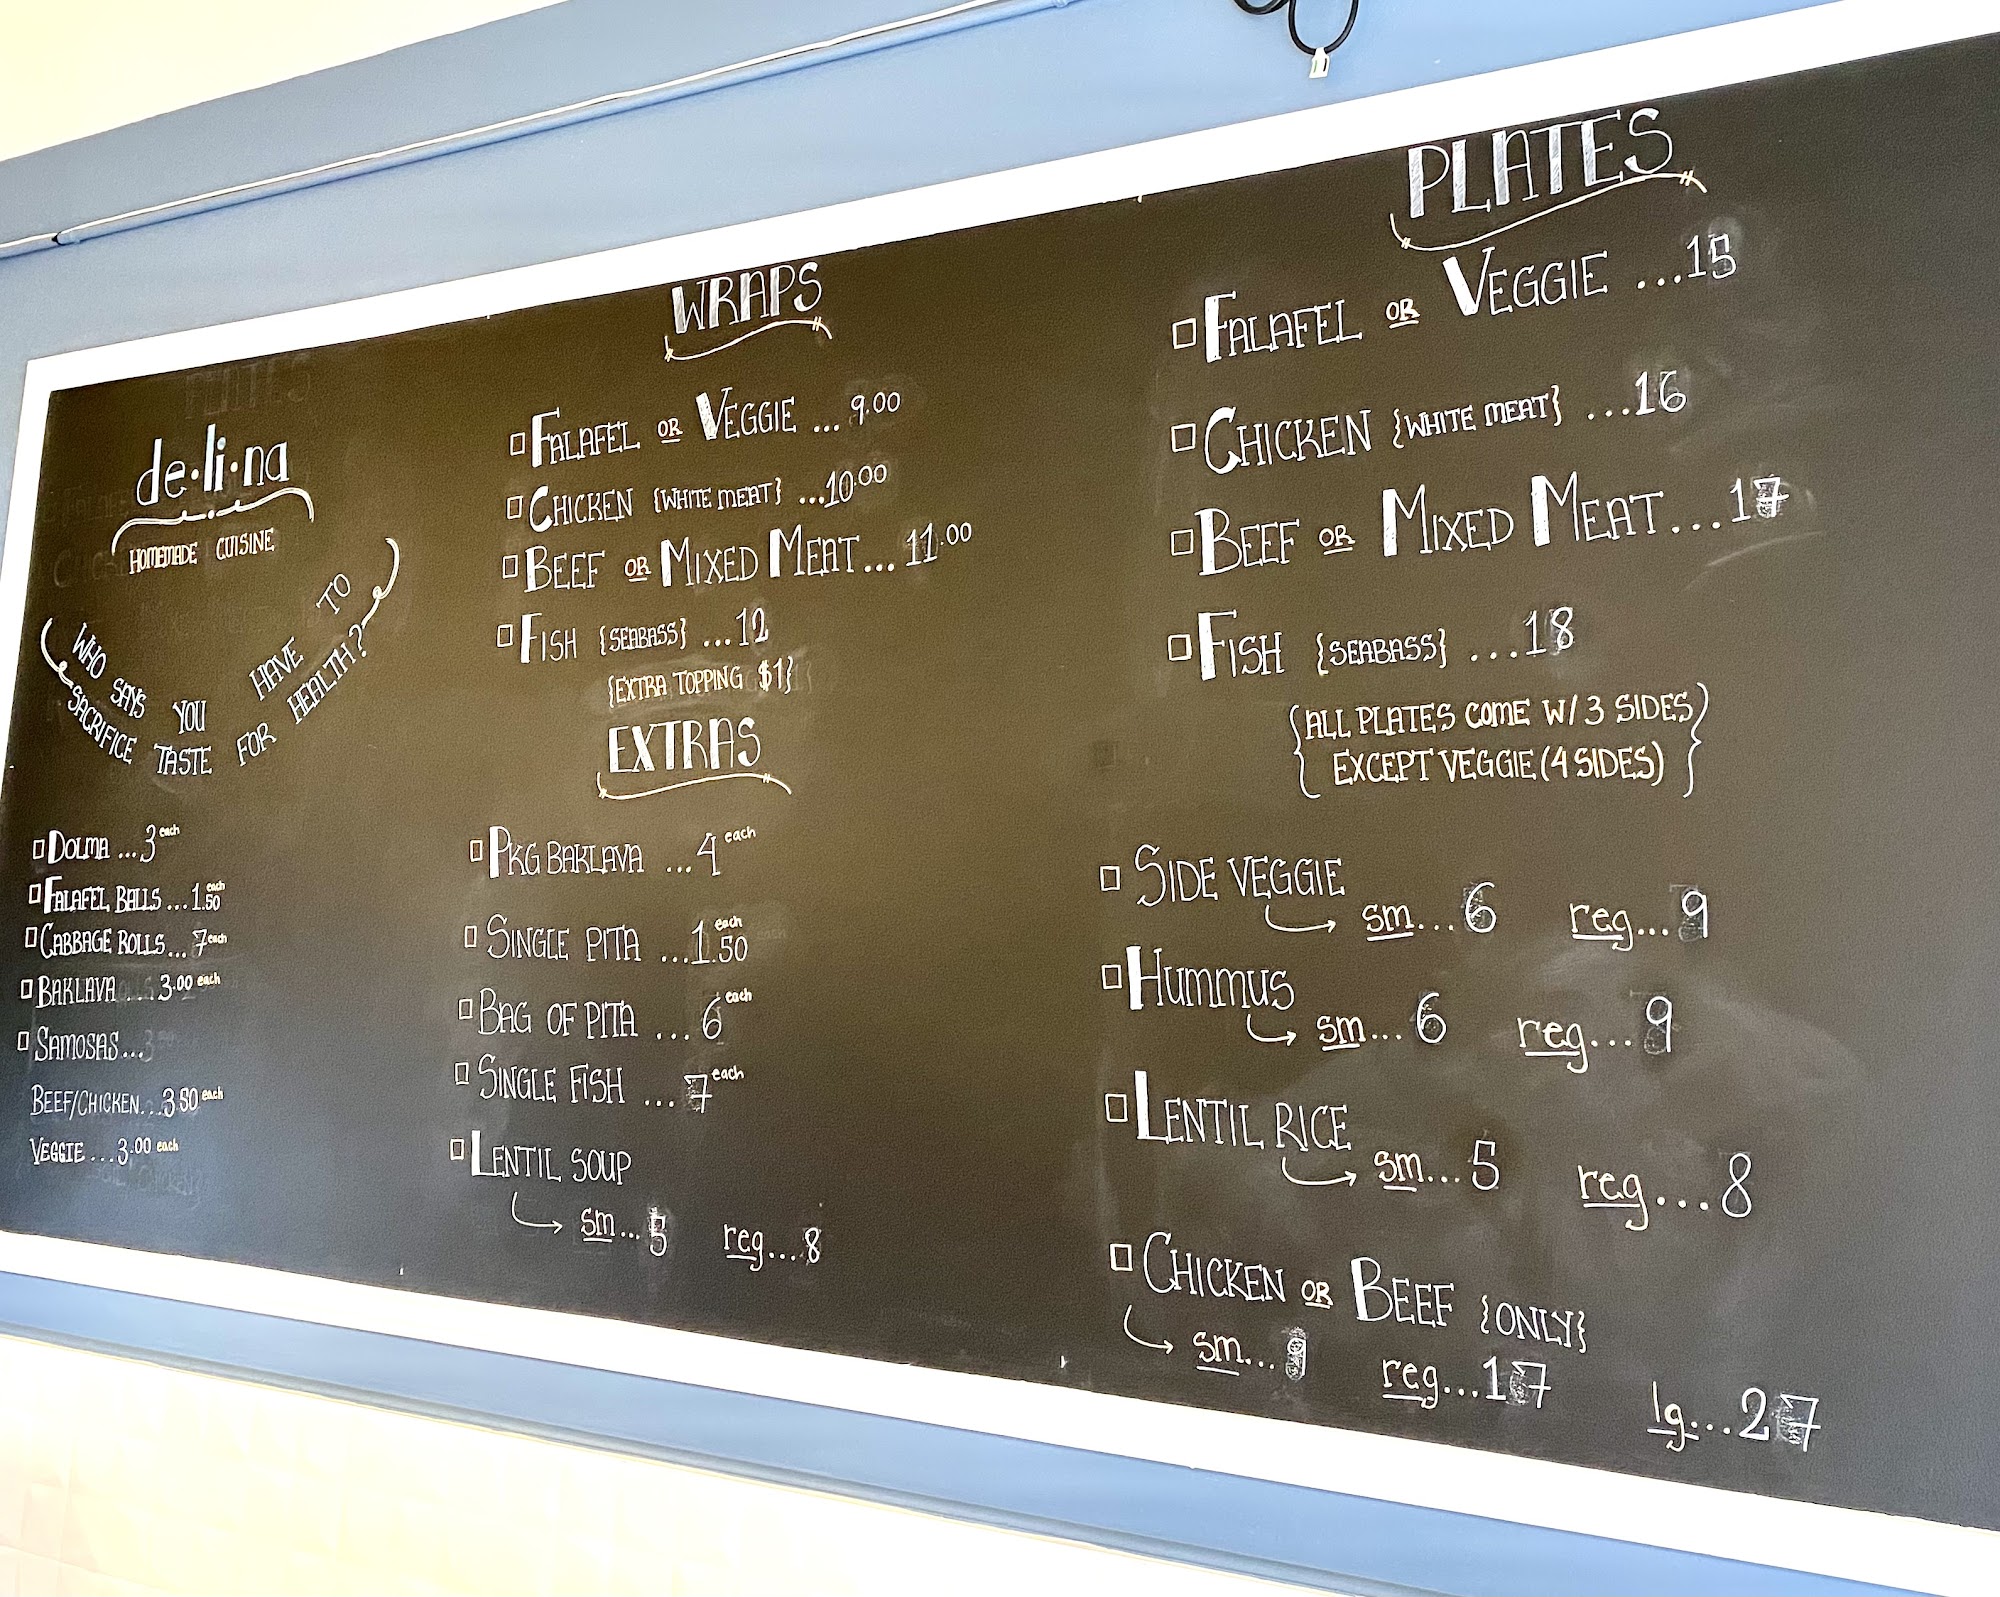 de·li·na
HOMEMADE CUISINE
WHO SAYS YOU HAVE TO
SACRIFICE TASTE FOR HEALTH?
DOLMA ...3 each
FALAFEL BALLS ...1.50 each
CABBAGE ROLLS... 7 each
BAKLAVA ... 3.00 each
SAMOSAS...
BEEF/CHICKEN...3.50 each
VEGGIE ...3.00 each
WRAPS
FALAFEL OR VEGGIE ...9.00
CHICKEN {WHITE MEAT} ...10.00
BEEF OR MIXED MEAT...11.00
FISH {SEABASS} ...12
{EXTRA TOPPING $1}
EXTRAS
PKG BAKLAVA ...4 each
SINGLE PITA ...1.50 each
BAG OF PITA ...6 each
SINGLE FISH ...7 each
LENTIL SOUP
sm...5 reg...8
PLATES
FALAFEL OR VEGGIE ...15
CHICKEN {WHITE MEAT} ...16
BEEF OR MIXED MEAT...17
FISH {SEABASS} ...18
{ALL PLATES COME W/ 3 SIDES
EXCEPT VEGGIE (4 SIDES)}
SIDE VEGGIE
sm...6 reg...9
HUMMUS
sm...6 reg...9
LENTIL RICE
sm...5 reg...8
CHICKEN OR BEEF {ONLY}
sm...9 reg...17 lg...27